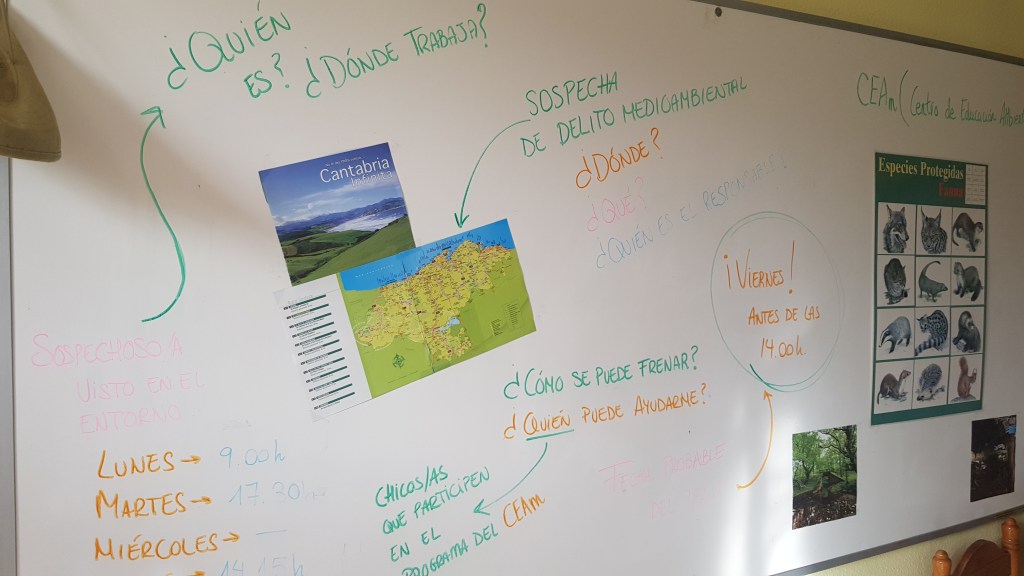 ¿QUIÉN
ES? ¿DÓNDE TRABAJA?
SOSPECHA
DE DELITO MEDIOAMBIENTAL
¿DÓNDE?
¿QUÉ?
¿QUIÉN ES EL RESPONSABLE?
CEAm (Centro de Educación Ambient
Cantabria
Infinita
Especies Protegidas
¡VIERNES!
ANTES DE LAS
14.00h.
SOSPECHOSO A
VISTO EN EL
ENTORNO
LUNES → 9.00h
MARTES → 17.30h
MIÉRCOLES → —
14.15h
¿CÓMO SE PUEDE FRENAR?
¿QUIÉN PUEDE AYUDARME?
CHICOS/AS
QUE PARTICIPEN
EN EL
PROGRAMA DEL CEAm
PROBABLE